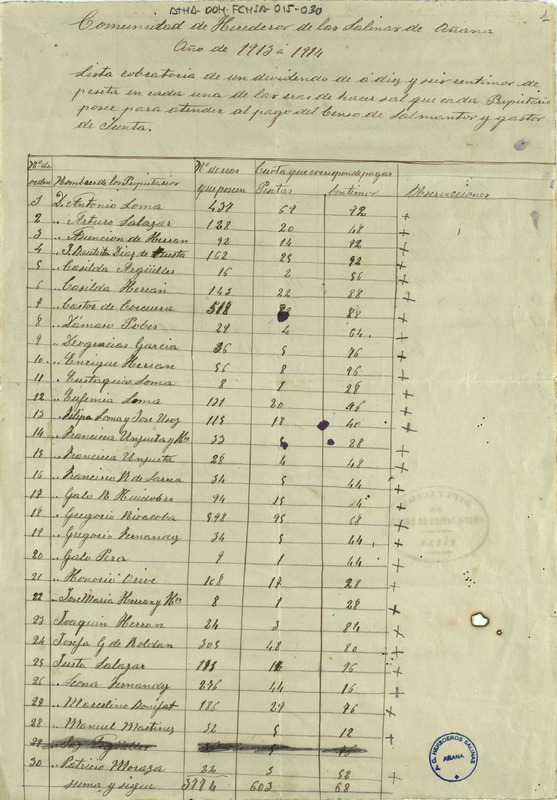 ATHA-DOM-FCHSA-015-030
Comunidad de Herederos de las Salinas de Añana
Año de 1913 á 1914
Lista cobratoria de un dividendo de á diez y seis centimos de
peseta en cada una de las eras de hacer sal que cada Propietario
posee para atender al pago del Censo de Salmantor y gastos
de Junta.
Nº de orden Nombres de los Propietarios Nº de eras que poseen Cuota que corresponde pagar Pesetas Centimos Observaciones
1 D. Antonio Loma 437 69 92 +
2 " Arturo Salazar 128 20 48 +
3 " Asuncion de Herran 92 14 92 +
4 " J. Bautista Diaz de Cuesta 162 25 92 +
5 " Casilda Argüelles 16 2 56 +
6 " Casilda Herran 143 22 88 +
7 " Castor de Corcuera 518 82 88 +
8 " Dámaso Pobes 29 4 64 +
9 " Deogracias Garcia 36 5 76 +
10 " Enrique Herran 56 8 96 +
11 " Eustaquio Loma 8 1 28 +
12 " Eufemia Loma 131 20 96 +
13 " Felipa Loma y Jose 115 18 40 +
14 " Francisca Unzueta y Hos 33 5 28 +
15 " Francisca Unzueta 28 4 48 +
16 " Francisco R. de 34 5 44 +
17 " Galo R. Huidobro 94 15 04 +
18 " Gregorio Rivacoba 598 95 68 +
19 " Gregorio Fernandez 34 5 44 +
20 " Galo Perea 9 1 44 +
21 " Honorio Orive 108 17 28 +
22 " Jose Maria Herran y Hos 8 1 28 +
23 " Joaquin Herran 24 3 84 +
24 " Josefa G. de Roldan 305 48 80 +
25 " Justo Salazar 11 76 +
26 " Leona Fernandez 276 44 16 +
27 " Marcelino Bonifat 186 29 76 +
28 " Manuel Martinez 32 5 12 +
29
30 " Patricio Moraza 22 3 52 +
suma y sigue 603 68 +
P.G. HEREDEROS SALINAS
AÑANA